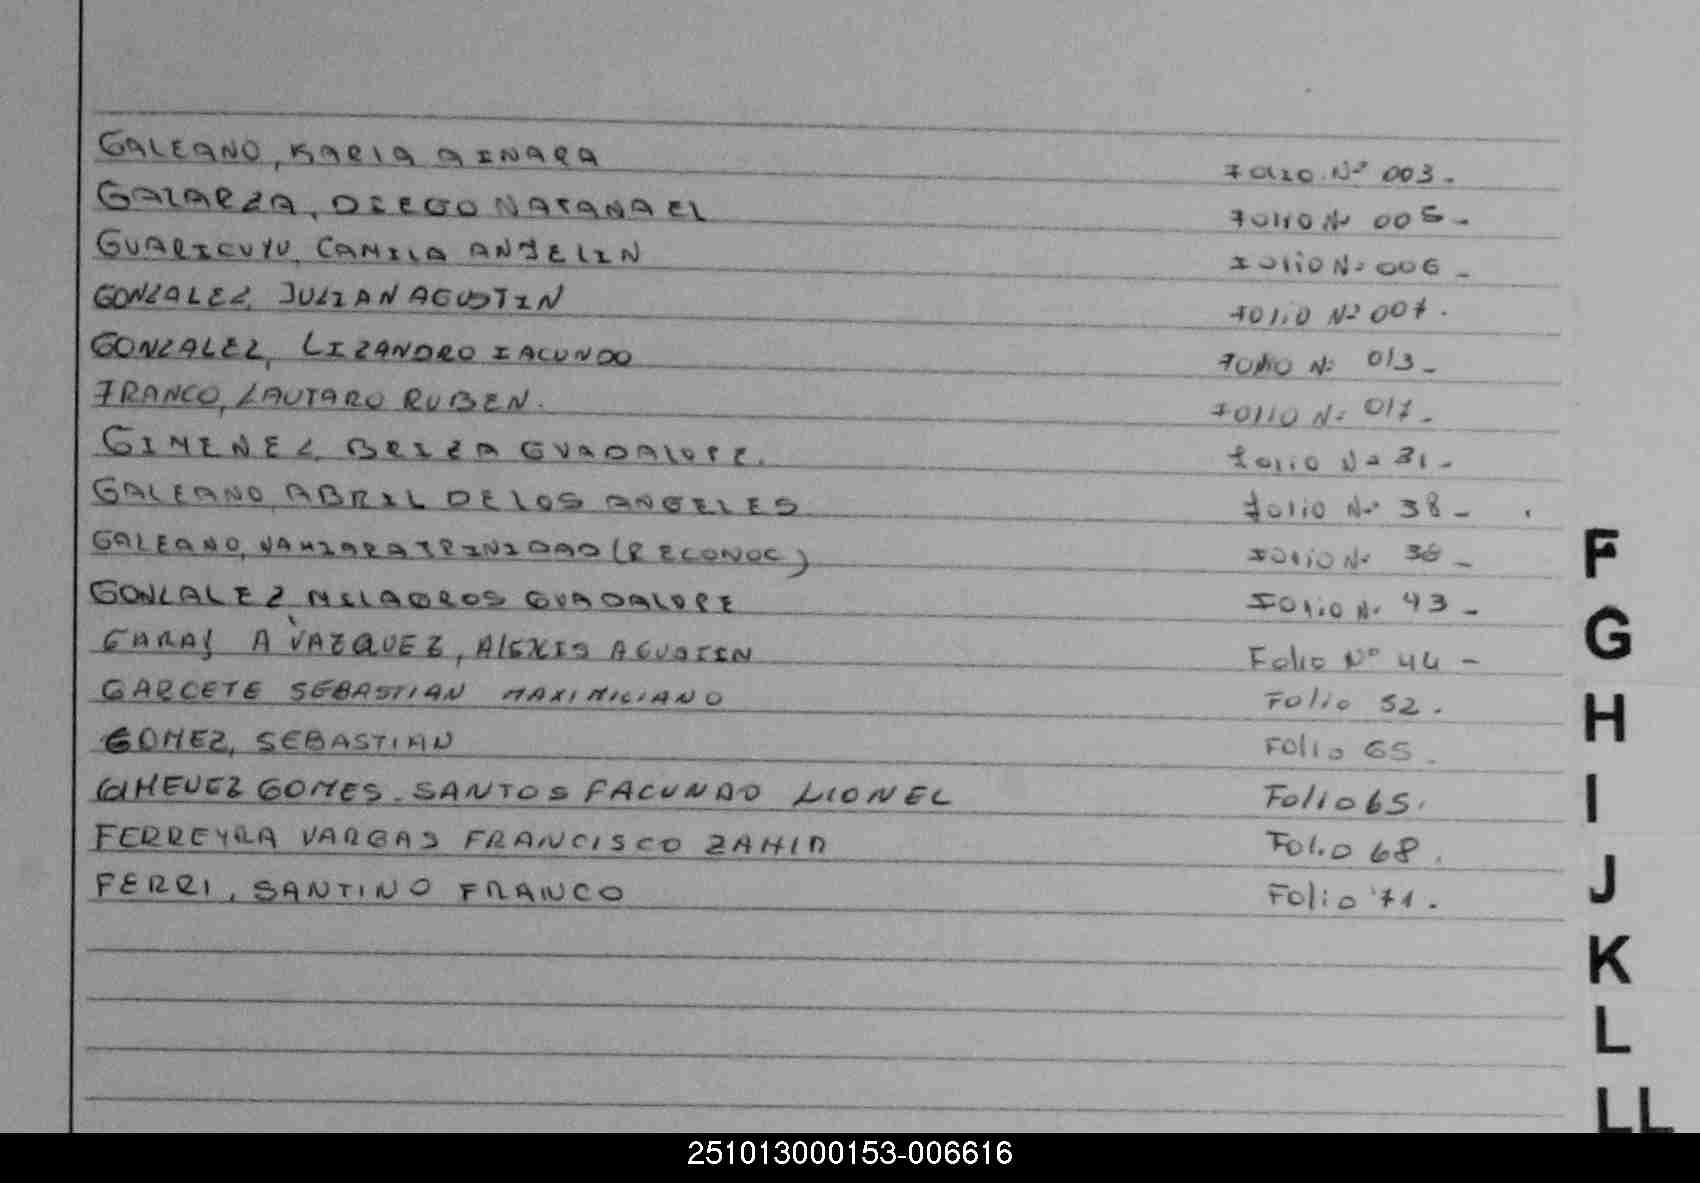 GALEANO, MARIA AINARA FOLIO Nº 003.-
GALARZA, DIEGO NATANAEL FOLIO Nº 005-
GUARICUYU, CAMILA ANJELIN FOLIO Nº 006-
GONZALEZ, JULIAN AGUSTIN FOLIO Nº 007.
GONZALEZ, LIZANDRO FACUNDO FOLIO Nº 013-
FRANCO, LAUTARO RUBEN. FOLIO Nº 017-
GIMENEZ, BRIZA GUADALUPE. FOLIO Nº 31-
GALEANO, ABRIL DE LOS ANGELES FOLIO Nº 38-
GALEANO, TRINIDAD (RECONOC) FOLIO Nº -
GONZALEZ, MILAGROS GUADALUPE FOLIO Nº 43-
VAZQUEZ, ALEXIS AGUSTIN Folio Nº 44-
GARCETE SEBASTIAN MAXIMILIANO Folio 52.
GOMEZ, SEBASTIAN Folio 65.
GIMENEZ GOMES. SANTOS FACUNDO LIONEL Folio 65.
FERREYRA VARGAS FRANCISCO ZAHIR Folio 68.
FERRI, SANTINO FRANCO Folio 71.
F
G
H
I
J
K
L
LL
251013000153-006616